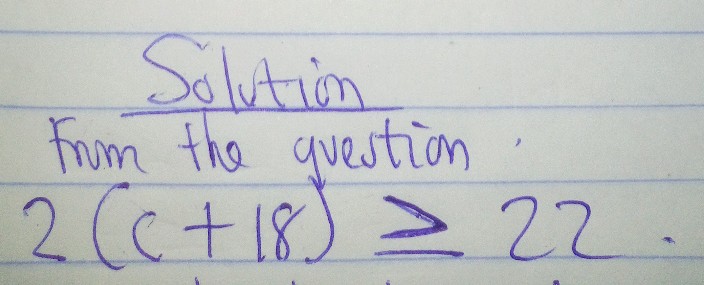 Solution
From the question.
2(c+18) ≥ 22.